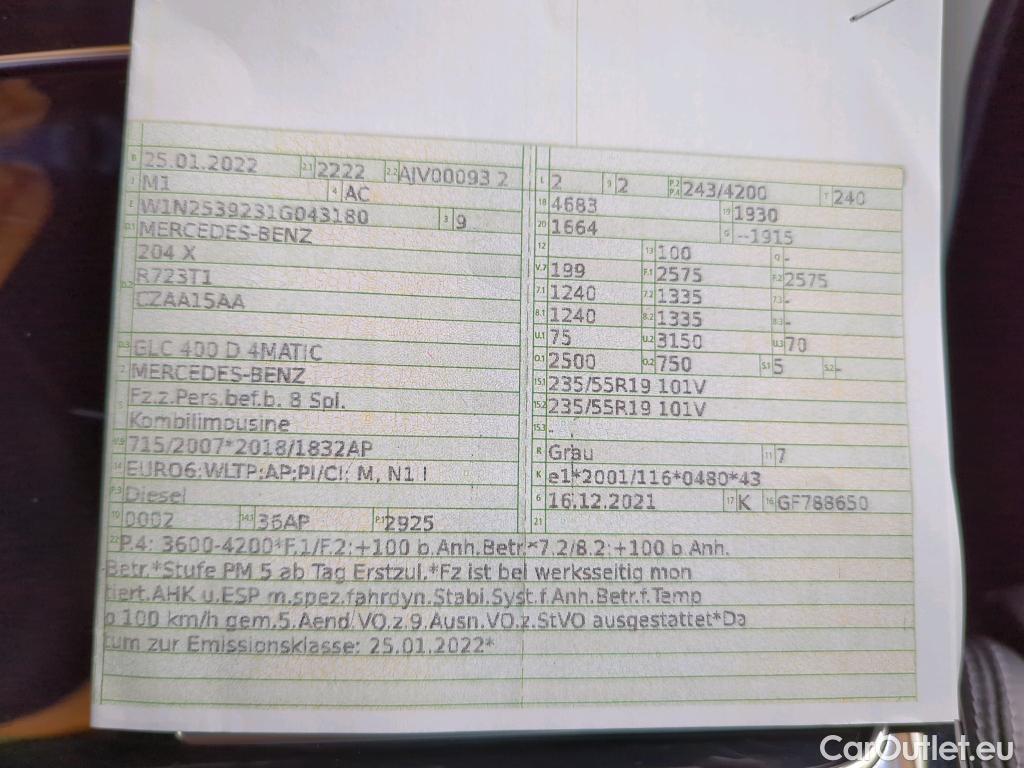 B 25.01.2022 2.1 2222 2.2 AJV00093 2
J M1 4 AC
E W1N2539231G043180 3 9
D.1 MERCEDES-BENZ
204 X
D.2 R723T1
CZAA15AA
D.3 GLC 400 D 4MATIC
2 MERCEDES-BENZ
5 Fz.z.Pers.bef.b. 8 Spl.
Kombilimousine
V.9 715/2007*2018/1832AP
14 EURO6;WLTP;AP;PI/CI; M, N1 I
P.3 Diesel
10 0002 14.1 36AP P.1 2925
L 2 9 2 P.2 P.4 243/4200 T 240
18 4683 19 1930
20 1664 G --1915
12 13 100 Q -
V.7 199 F.1 2575 F.2 2575
7.1 1240 7.2 1335 7.3 -
8.1 1240 8.2 1335 8.3 -
U.1 75 U.2 3150 U.3 70
O.1 2500 O.2 750 S.1 5 S.2 -
15.1 235/55R19 101V
15.2 235/55R19 101V
15.3 -
R Grau 11 7
K e1*2001/116*0480*43
6 16.12.2021 17 K 16 GF788650
21
22 P.4: 3600-4200*F.1/F.2:+100 b.Anh.Betr.*7.2/8.2:+100 b.Anh.
Betr.*Stufe PM 5 ab Tag Erstzul.*Fz ist bei werksseitig mon
tiert.AHK u.ESP m.spez.fahrdyn.Stabi.Syst.f.Anh.Betr.f.Temp
o 100 km/h gem.5.Aend.VO.z.9.Ausn.VO.z.StVO ausgestattet*Da
tum zur Emissionsklasse: 25.01.2022*
CarOutlet.eu